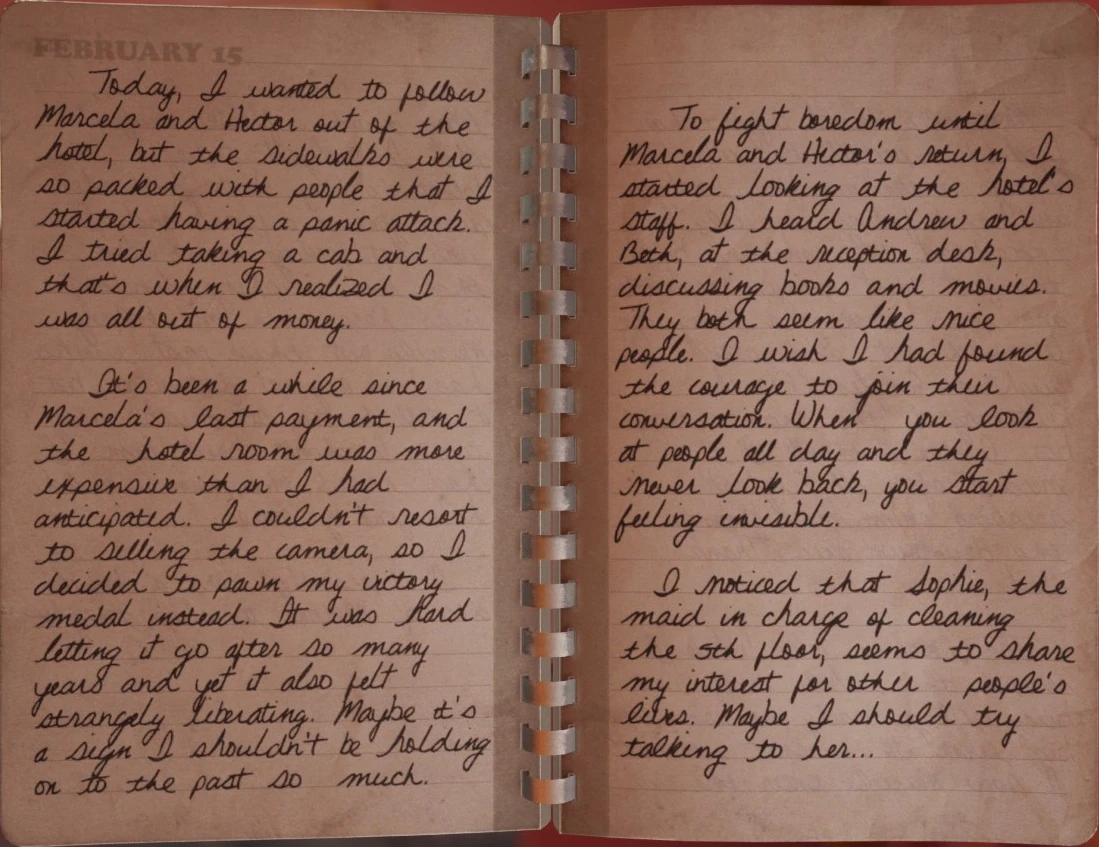 FEBRUARY 15
Today, I wanted to follow
Marcela and Hector out of the
hotel, but the sidewalks were
so packed with people that I
started having a panic attack.
I tried taking a cab and
that's when I realized I
was all out of money.
It's been a while since
Marcela's last payment, and
the hotel room was more
expensive than I had
anticipated. I couldn't resort
to selling the camera, so I
decided to pawn my victory
medal instead. It was hard
letting it go after so many
years and yet it also felt
strangely liberating. Maybe it's
a sign I shouldn't be holding
on to the past so much.
To fight boredom until
Marcela and Hector's return, I
started looking at the hotel's
staff. I heard Andrew and
Beth, at the reception desk,
discussing books and movies.
They both seem like nice
people. I wish I had found
the courage to join their
conversation. When you look
at people all day and they
never look back, you start
feeling invisible.
I noticed that Sophie, the
maid in charge of cleaning
the 5th floor, seems to share
my interest for other people's
lives. Maybe I should try
talking to her...